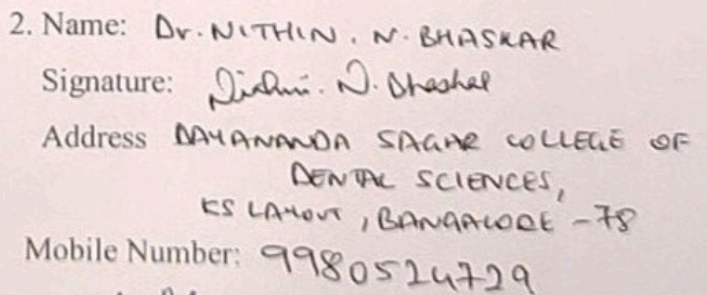 2. Name: Dr. NITHIN. N. BHASKAR
Signature: Nithin. N. Bhaskar
Address DAYANANDA SAGAR COLLEGE OF
DENTAL SCIENCES,
KS LAYOUT, BANGALORE - 78
Mobile Number: 9980524729